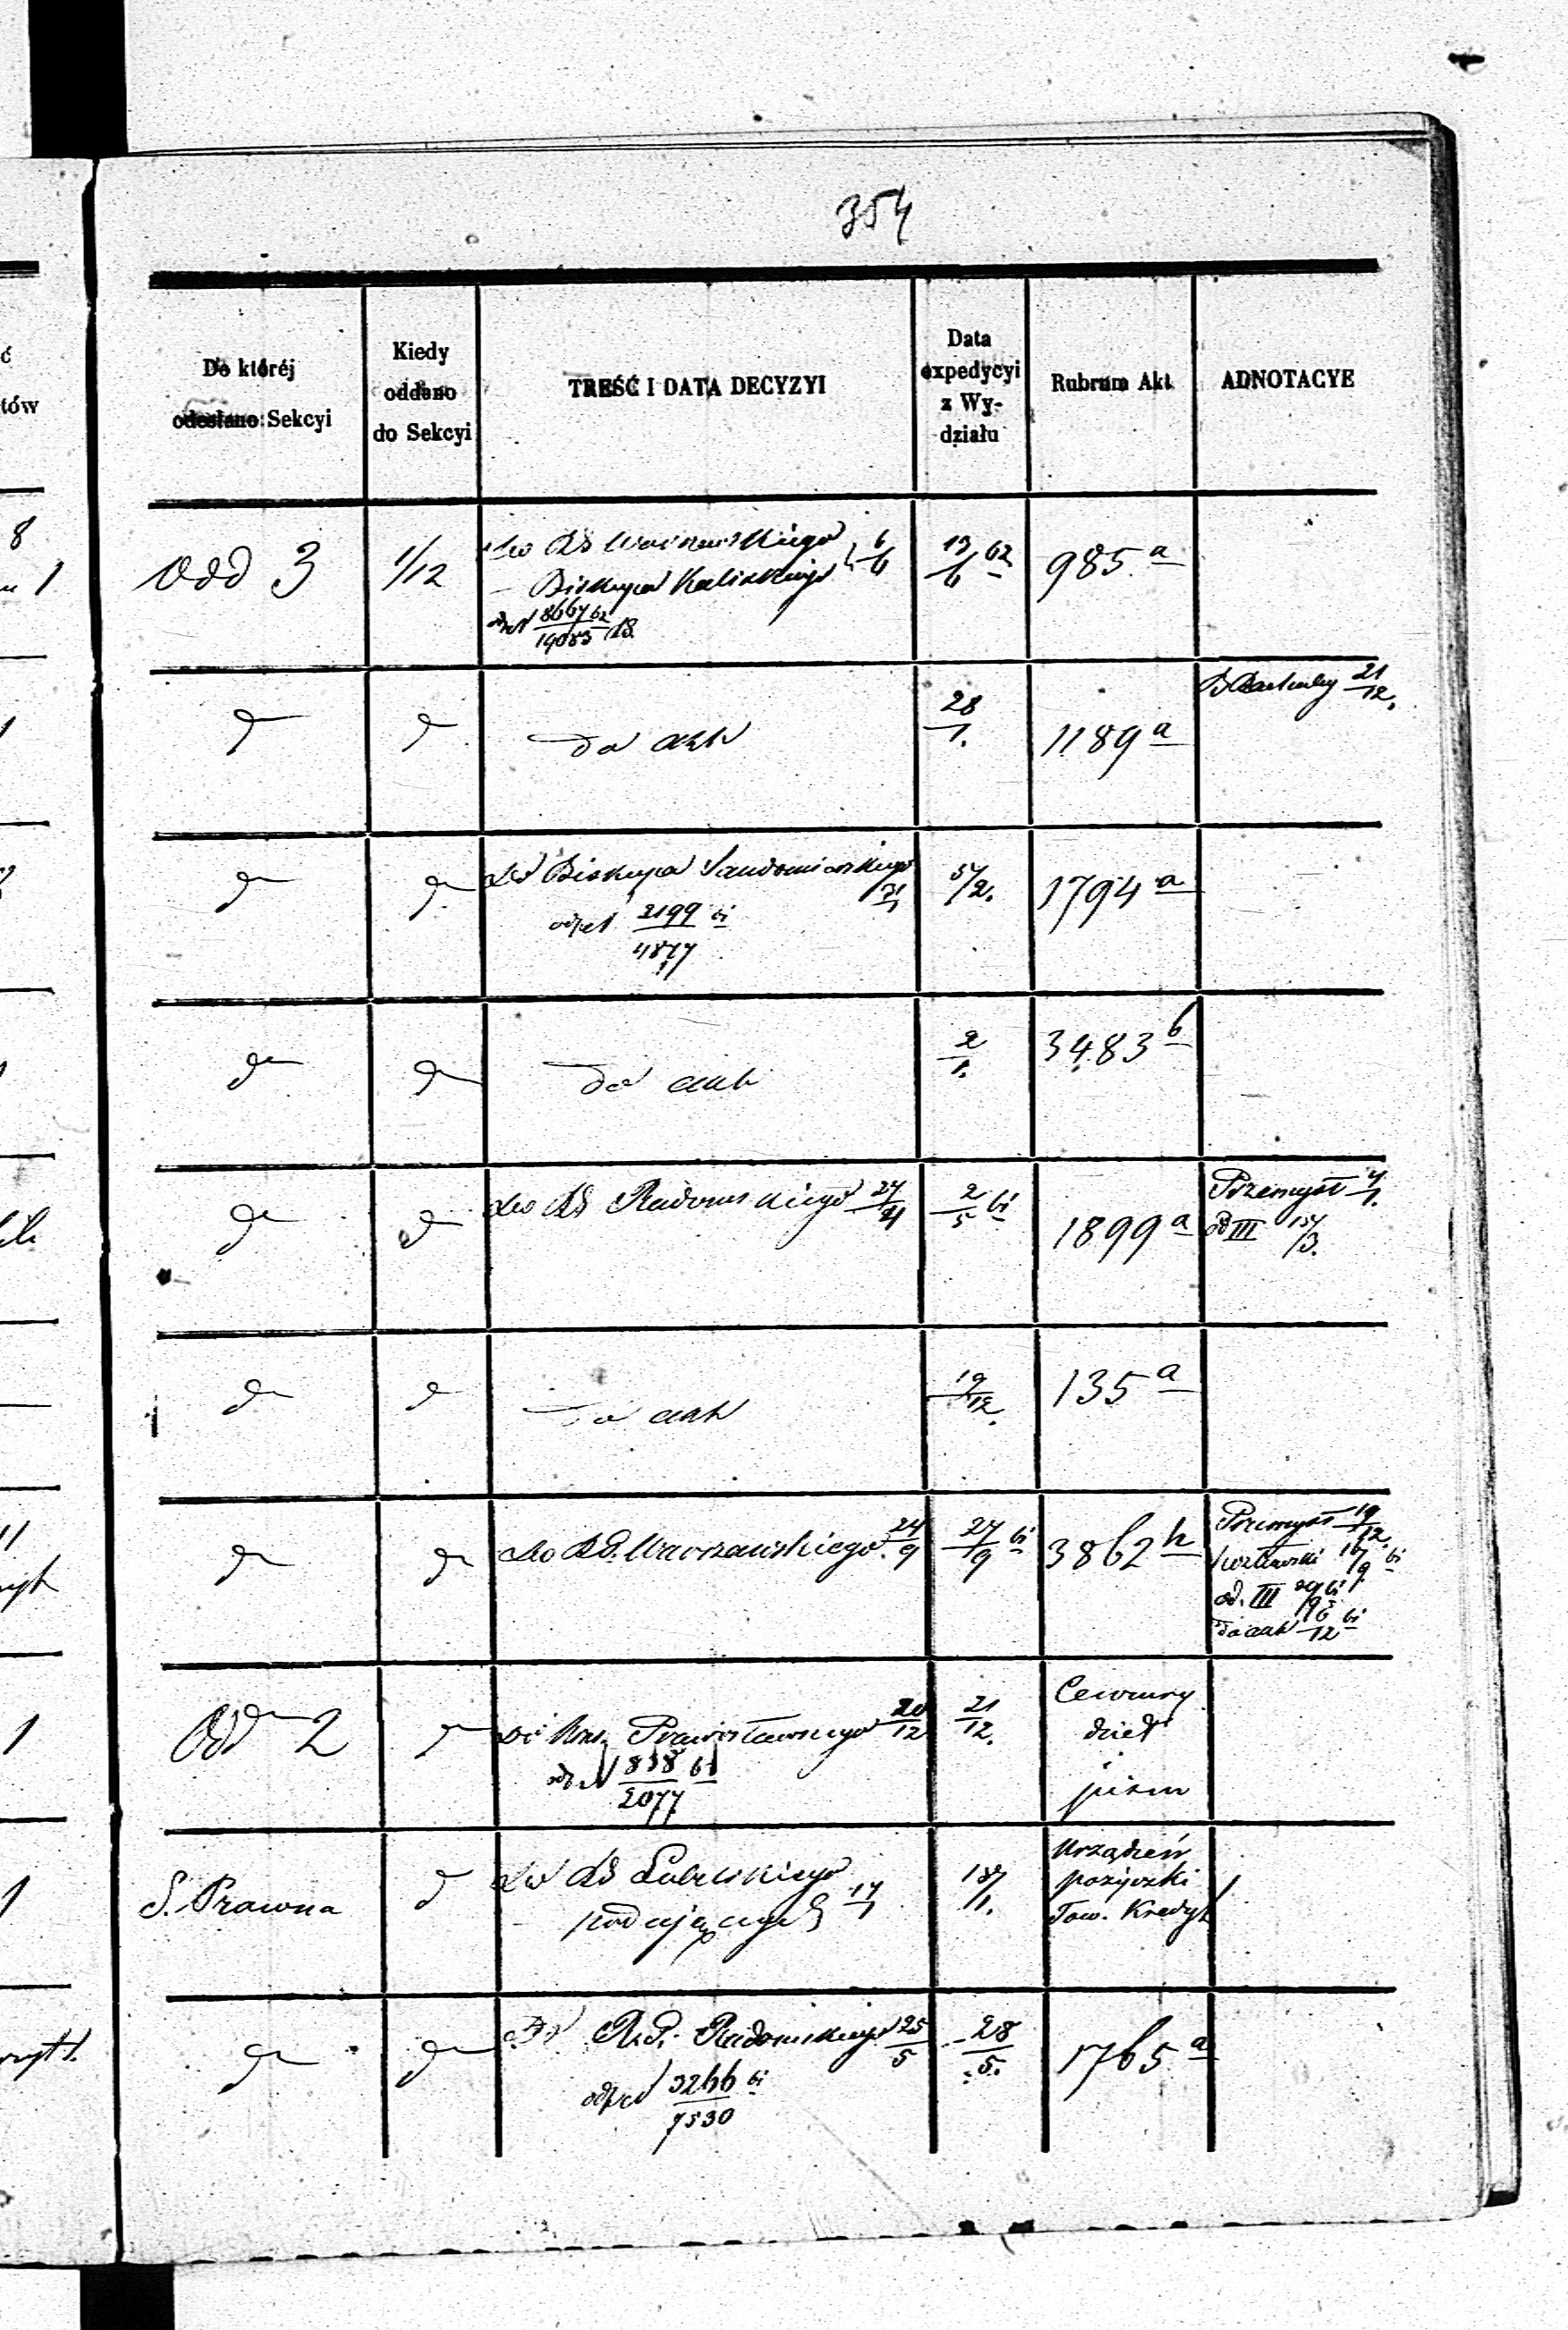 354
Do któréj
odesłano Sekcyi
Kiedy
oddano
do Sekcyi
TREŚĆ I DATA DECYZYI
Data
expedycyi
z Wy-
działu
Rubrum Akt
ADNOTACYE
Odd 3
1/12
Do RG Warszawskiego
– Biskupa Kaliskiego 6/6
13/6 62
985 a
d
d
do akt
28/1.
1189 a
21/12.
d
d
do Biskupa Sandomierskiego
31/1
odpet 2199/4877
5/2.
1794 a
d
d
do akt
2/1.
3483 b
d
d
do RG Radomskiego 27/4
2/5
1899 a
Przemysł 4/1.
od III 15/3.
d
d
do akt
19/12.
135 a
d
d
do RG. Warszawskiego 24/9
27/9
3862 h
Przemysł 19/12
od. III
do akt
Odd 2
d
Prawosławnego 20/12
838/2077
21/12.
Cenzury
dzieł
i
pism
S. Prawna
d
do RG Lubelskiego
podającego 17/1
18/1.
Urządzeń
pożyczki
Tow. Kredyt
d
d
Do R.G. Radomskiego 25/5
odpet 3266/7530
28/5.
1765 a